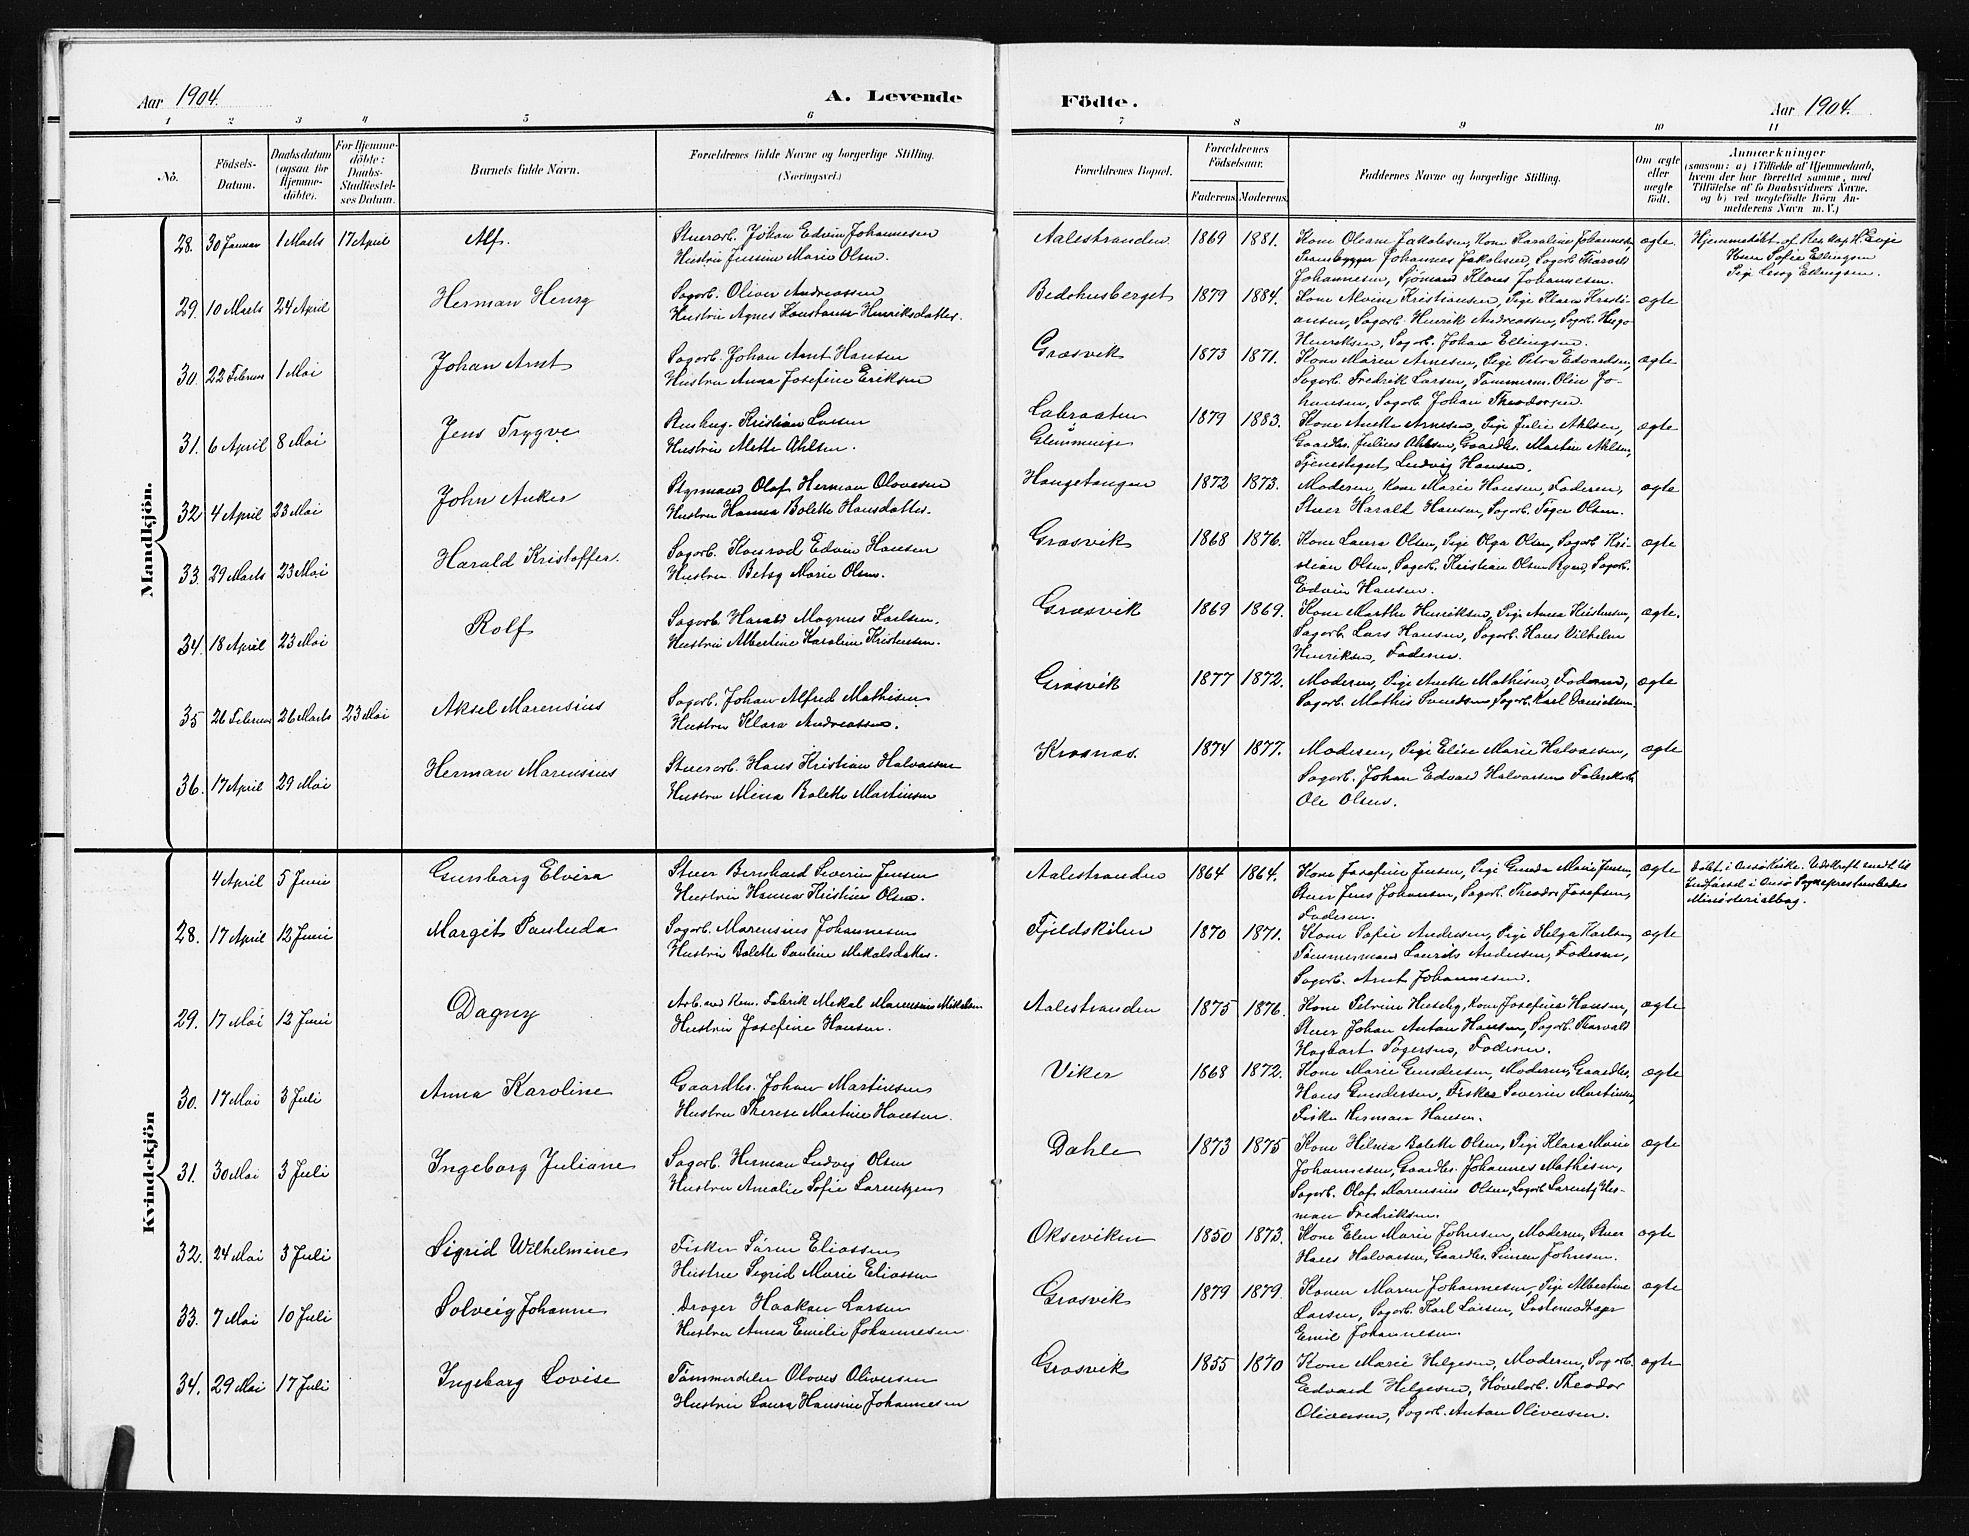 Aar 1904.
A. Levende
Födte.
Aar 1904.
1 2 3 4 5 6 7 8 9 10 11
No.
Födsels-
Datum.
Daabsdatum
(ogsaa for
Hjemme-
döbte).
For Hjemme-
döbte:
Daabs-
Stadfæstel-
ses Datum.
Barnets fulde Navn.
Forældrenes fulde Navne og borgerlige Stilling.
(Næringsvei.)
Forældrenes Bopæl.
Forældrenes
Födselsaar.
Faderens Moderens
Faddernes Navne og borgerlige Stilling.
Om ægte
eller
uægte
födt.
Anmærkninger
(saasom: a) i Tilfælde af Hjemmedaab,
hvem der har forrettet samme, med
Tilföielse af to Daabsvidners Navne.
og b) ved uægtefödte Börn An-
melderens Navn m. V.)
Mandkjön.
28. 30 Januar 1 Marts 17 April Alf.
Stuerarb. Johan Edvin Johannesen
Hustru Jensine Marie Olsen.
Aalestranden 1869 1881.
Kone Oleane Jakobsen, Kone Karoline Johannesen,
Johannes Jakobsen, Sagarb. Tharvald
Johannesen, Sjömand Klaus Johannesen.
ægte.
Hjemmedöbt af
Sofie Ellingsen
Pige Ellingsen.
29. 10 Marts 24 April Herman Henry
Sagarb. Oliver Andreassen
Hustru Agnes Konstanse Henriksdatter.
Bedohusberget 1879 1884.
Kone Alvine Kristiansen, Pige Klara Kristi-
ansen, Sagarb. Henrik Andreassen, Sagarb. Hugo
Henriksen, Sagarb. Johan Ellingsen.
ægte
30. 22 Februar 1 Mai Johan Arnt
Sagarb. Johan Arnt Hansen
Hustru Anna Josefine Eriksen
Græsvik 1873 1871.
Kone Maren Arnesen, Pige Petra Edvardsen,
Sagarb. Fredrik Larsen, Tømmerm. Olin Jo-
hansen, Sagarb. Johan Theodorsen.
ægte
31. 6 April 8 Mai Jens Trygve
Kristian Larsen
Hustru Alette Ahlsen.
Labraaten
Glemminge
1879 1883.
Kone Anette Arnesen, Pige Julie Ahlsen,
Gaardbr. Julius Ahlsen, Gaardbr. Martin Ahlsen,
Tjenestegut Ludvig Hansen.
ægte
32 4 April 23 Mai John Anker
Styrmand Olaf Herman Olavesen
Hustru Hanna Bolette Hansdatter.
Haugetangen 1872 1873.
Moderen, Kone Marie Hansen, Faderen,
Stuer Harald Hansen, Sagarb. Olsen.
ægte
33. 29 Marts 23 Mai Harald Kristoffer.
Sagarb. Konrad Edvin Hansen
Hustru Betsy Marie Olsen.
Græsvik 1868 1876.
Kone Laura Olsen, Pige Olga Olsen, Sagarb. Kri-
stian Olsen, Sagarb. Kristian Olsen Ryen, Sagarb.
Edvin Hansen.
ægte
34. 18 April 23 Mai Rolf
Sagarb. Harald Magnus Karlsen.
Hustru Albertine Karoline Kristensen.
Græsvik 1869 1869.
Kone Marthe Henriksen, Pige Anna Kristensen,
Sagarb. Lars Hansen, Sagarb. Hans Vilhelm
Henriksen, Faderen.
ægte.
35 26 Februar 26 Marts 23 Mai Aksel Marensius
Sagarb. Johan Alfred Mathisen
Hustru Klara Andreassen.
Græsvik 1877 1872.
Moderen, Pige Anette Mathisen, Faderen,
Sagarb. Mathis Svendsen, Sagarb. Karl Danielsen.
ægte
36. 17 April 29 Mai Herman Marensius
Stuerarb. Hans Kristian Halvorsen
Hustru Mina Bolette Martinsen
Kraanæs. 1874 1877.
Moderen, Pige Elise Marie Halvorsen,
Sagarb. Johan Edvard Halvorsen Fabrikarb.
Ole Olsen.
ægte
Kvindekjön
4 April 5 Juni Gunborg Elvira
Stuer Bernhard Severin Jensen
Hustru Hanna Kristine Olsen.
Aalestranden 1864 1864.
Kone Josefine Jensen, Pige Gunda Marie Jensen,
Stuer Jens Johansen, Sagarb. Theodor Josefsen,
Faderen.
ægte
Döbt i Onsö Kirke. Udskrift sendt til
Indførsel i Onsö Sogneprestembedes
Ministerialbog.
28. 17 April 12 Juni Margit Pauluda
Sagarb. Marensius Johannesen
Hustru Bolette Pauline Mekalsdatter.
Fjeldskilen 1870 1871.
Kone Sofie Andersen, Pige Helga Karlsen,
Tømmermand Laurits Andersen, Faderen,
Sagarb. Arnt Johannesen.
ægte
29. 17 Mai 12 Juni Dagny
Arb. ved Kem. Fabrik Mekal Marensius Mikalsen
Hustru Josefine Hansen.
Aalestranden 1875 1876.
Kone Petrine Huseby, Kone Josefine Hansen,
Stuer Johan Anton Hansen, Sagarb. Tharvald
Hagbart Tøgersen, Faderen.
ægte
30. 17 Mai 3 Juli Anna Karoline
Gaardbr. Johan Martinsen
Hustru Therese Martine Hansen.
Viker 1868 1872.
Kone Marie Gundersen, Moderen, Gaardbr.
Hans Gundersen, Fisker Severin Martinsen,
Fisker Herman Hansen.
ægte
31. 30 Mai 3 Juli Ingeborg Juliane
Sagarb. Herman Ludvig Olsen
Hustru Amalie Sofie Larentzen
Dahle 1873 1875
Kone Hilma Bolette Olsen, Pige Klara Marie
Johannesen, Gaardbr. Johannes Mathisen,
Sagarb. Olaf Marensius Olsen, Sagarb. Larentz Her-
man Fredriksen.
ægte
32. 24 Mai 3 Juli Sigrid Wilhelmine
Fisker Søren Eliassen
Hustru Sigrid Marie Eliassen
Okseviken 1850 1873.
Kone Elen Marie Johnsen, Moderen, Stuer
Hans Halvorsen, Gaardbr. Simen Johnsen.
ægte
33. 7 Mai 10 Juli Solveig Johanne
Drager Haakon Larsen
Hustru Anna Emilie Johannesen
Græsvik 1879 1879.
Konen Maren Johannesen, Pige Albertine
Larsen, Sagarb. Karl Larsen,
Emil Johannesen.
ægte
34. 29 Mai 17 Juli Ingeborg Lovise
Tömmerdeler Olaves Oliversen
Hustru Laura Hansine Johannesen
Græsvik 1855 1870
Kone Marie Helgesen, Moderen, Sagarb.
Edvard Helgesen, Høvelarb. Theodor
Oliversen, Sagarb. Anton Oliversen.
ægte